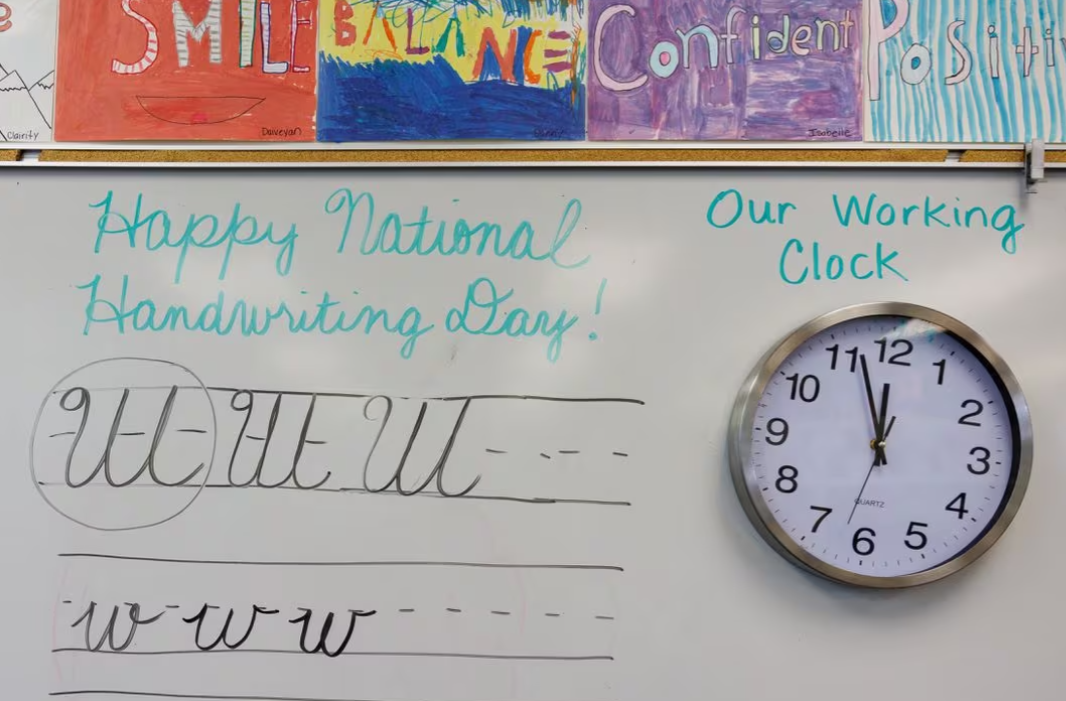 SMILE
BALANCE
Confident
Clairity
Daiveyan
Isabelle
Happy National
Handwriting Day!
Our Working
Clock
W W W
w w w
12
1
2
3
4
5
6
7
8
9
10
11
QUARTZ